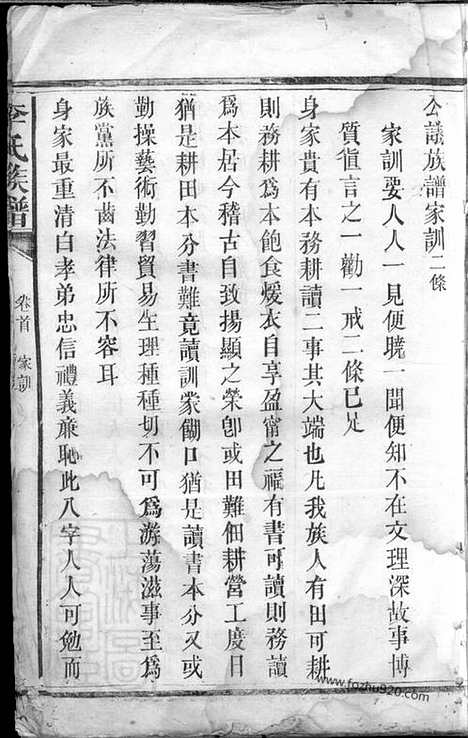 公議族譜家訓二條
家訓要人人一見便曉一聞便知不在文理深故事博
質直言之一勸一戒二條已足
身家貴有本務耕讀二事其大端也凡我族人有田可耕
則務耕為本飽食煖衣自享盈甯之福有書可讀則務讀
為本居今稽古自致揚顯之榮卽或田難佃耕營工度日
猶是耕田本分書難竟讀訓蒙餬口猶是讀書本分又或
勤操藝術勤習貿易生理種種切不可為游蕩滋事至為
族黨所不齒法律所不容耳
身家最重清白孝弟忠信禮義亷恥此八字人人可勉而
李氏族譜
卷首
家訓
www.fozhu920.com